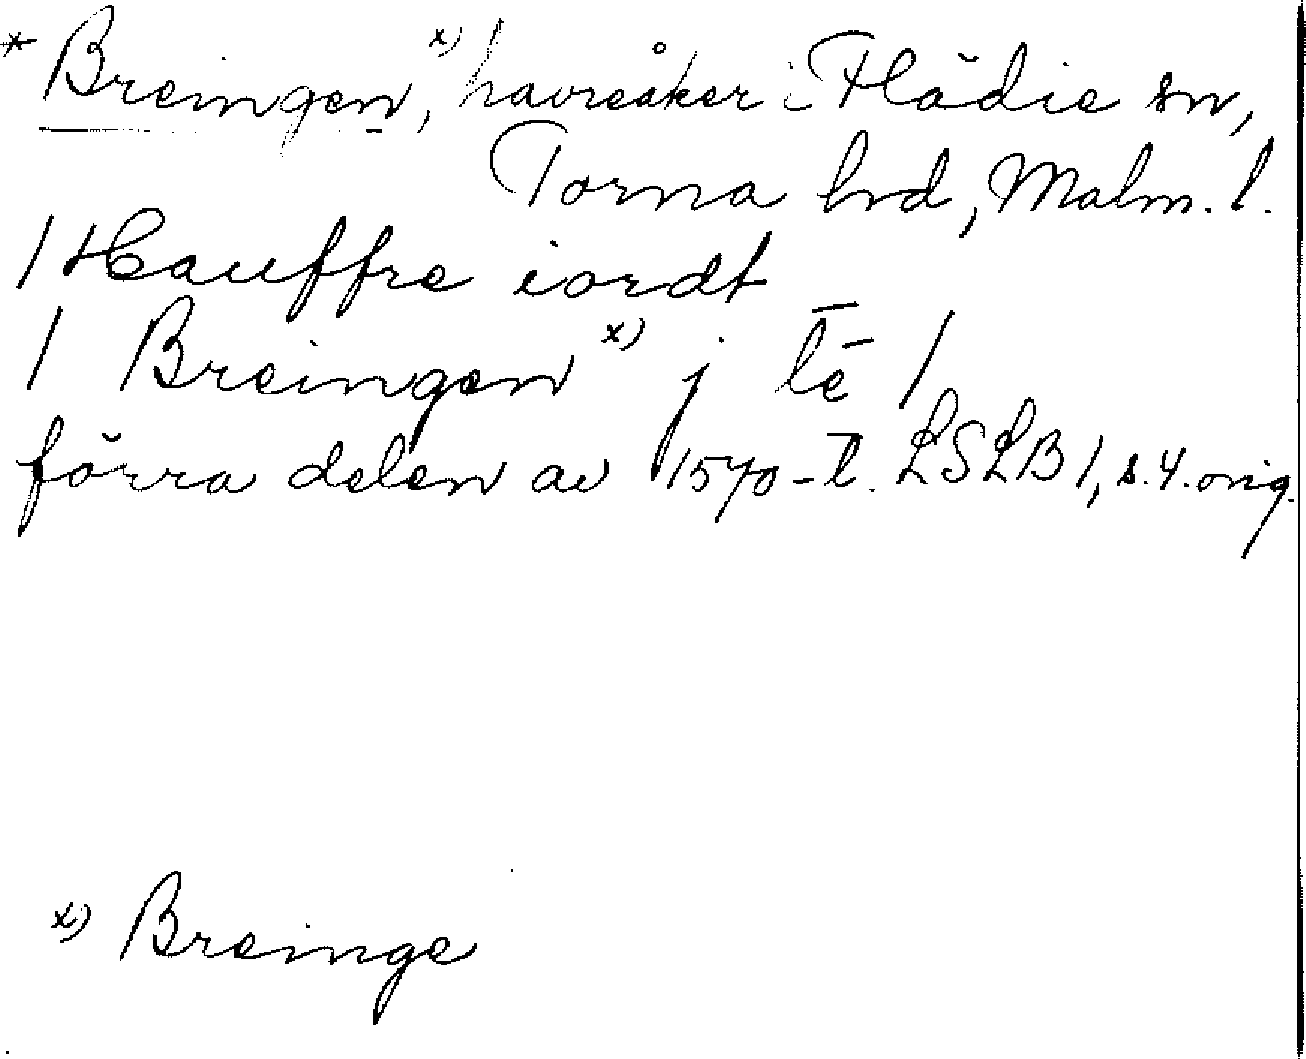 * Breingen, x) havreåker i Flädie sn,
Torna hrd, Malm. l.
/ Hauffre iordt
/ Breingen x) j lē̄ /
förra delen av 1570-t. LSLB 1, s. 4. orig.
x) Breinge